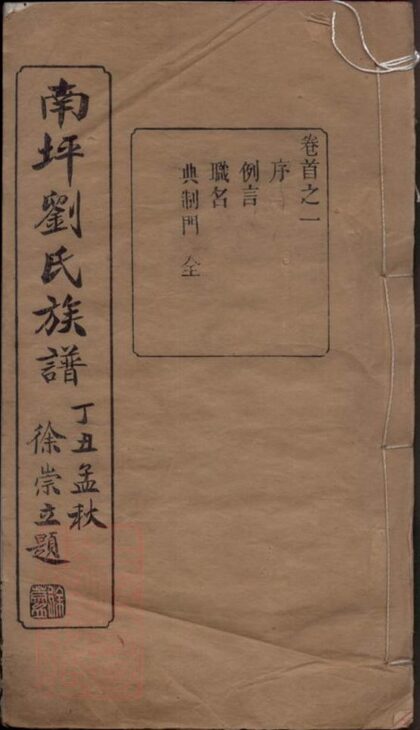 卷首之一
序
例言
職名
典制門 全
南坪劉氏族譜
丁丑孟秋
徐崇立題